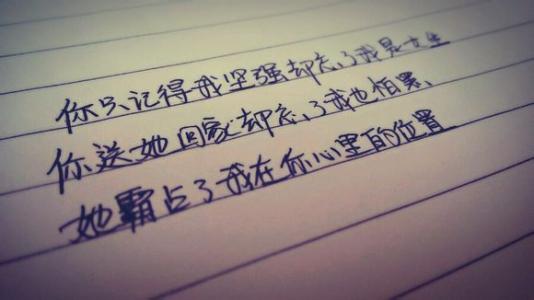 你只记得我坚强却忘了我是女生
你送她回家却忘了我也怕黑、
她霸占了我在你心里的位置